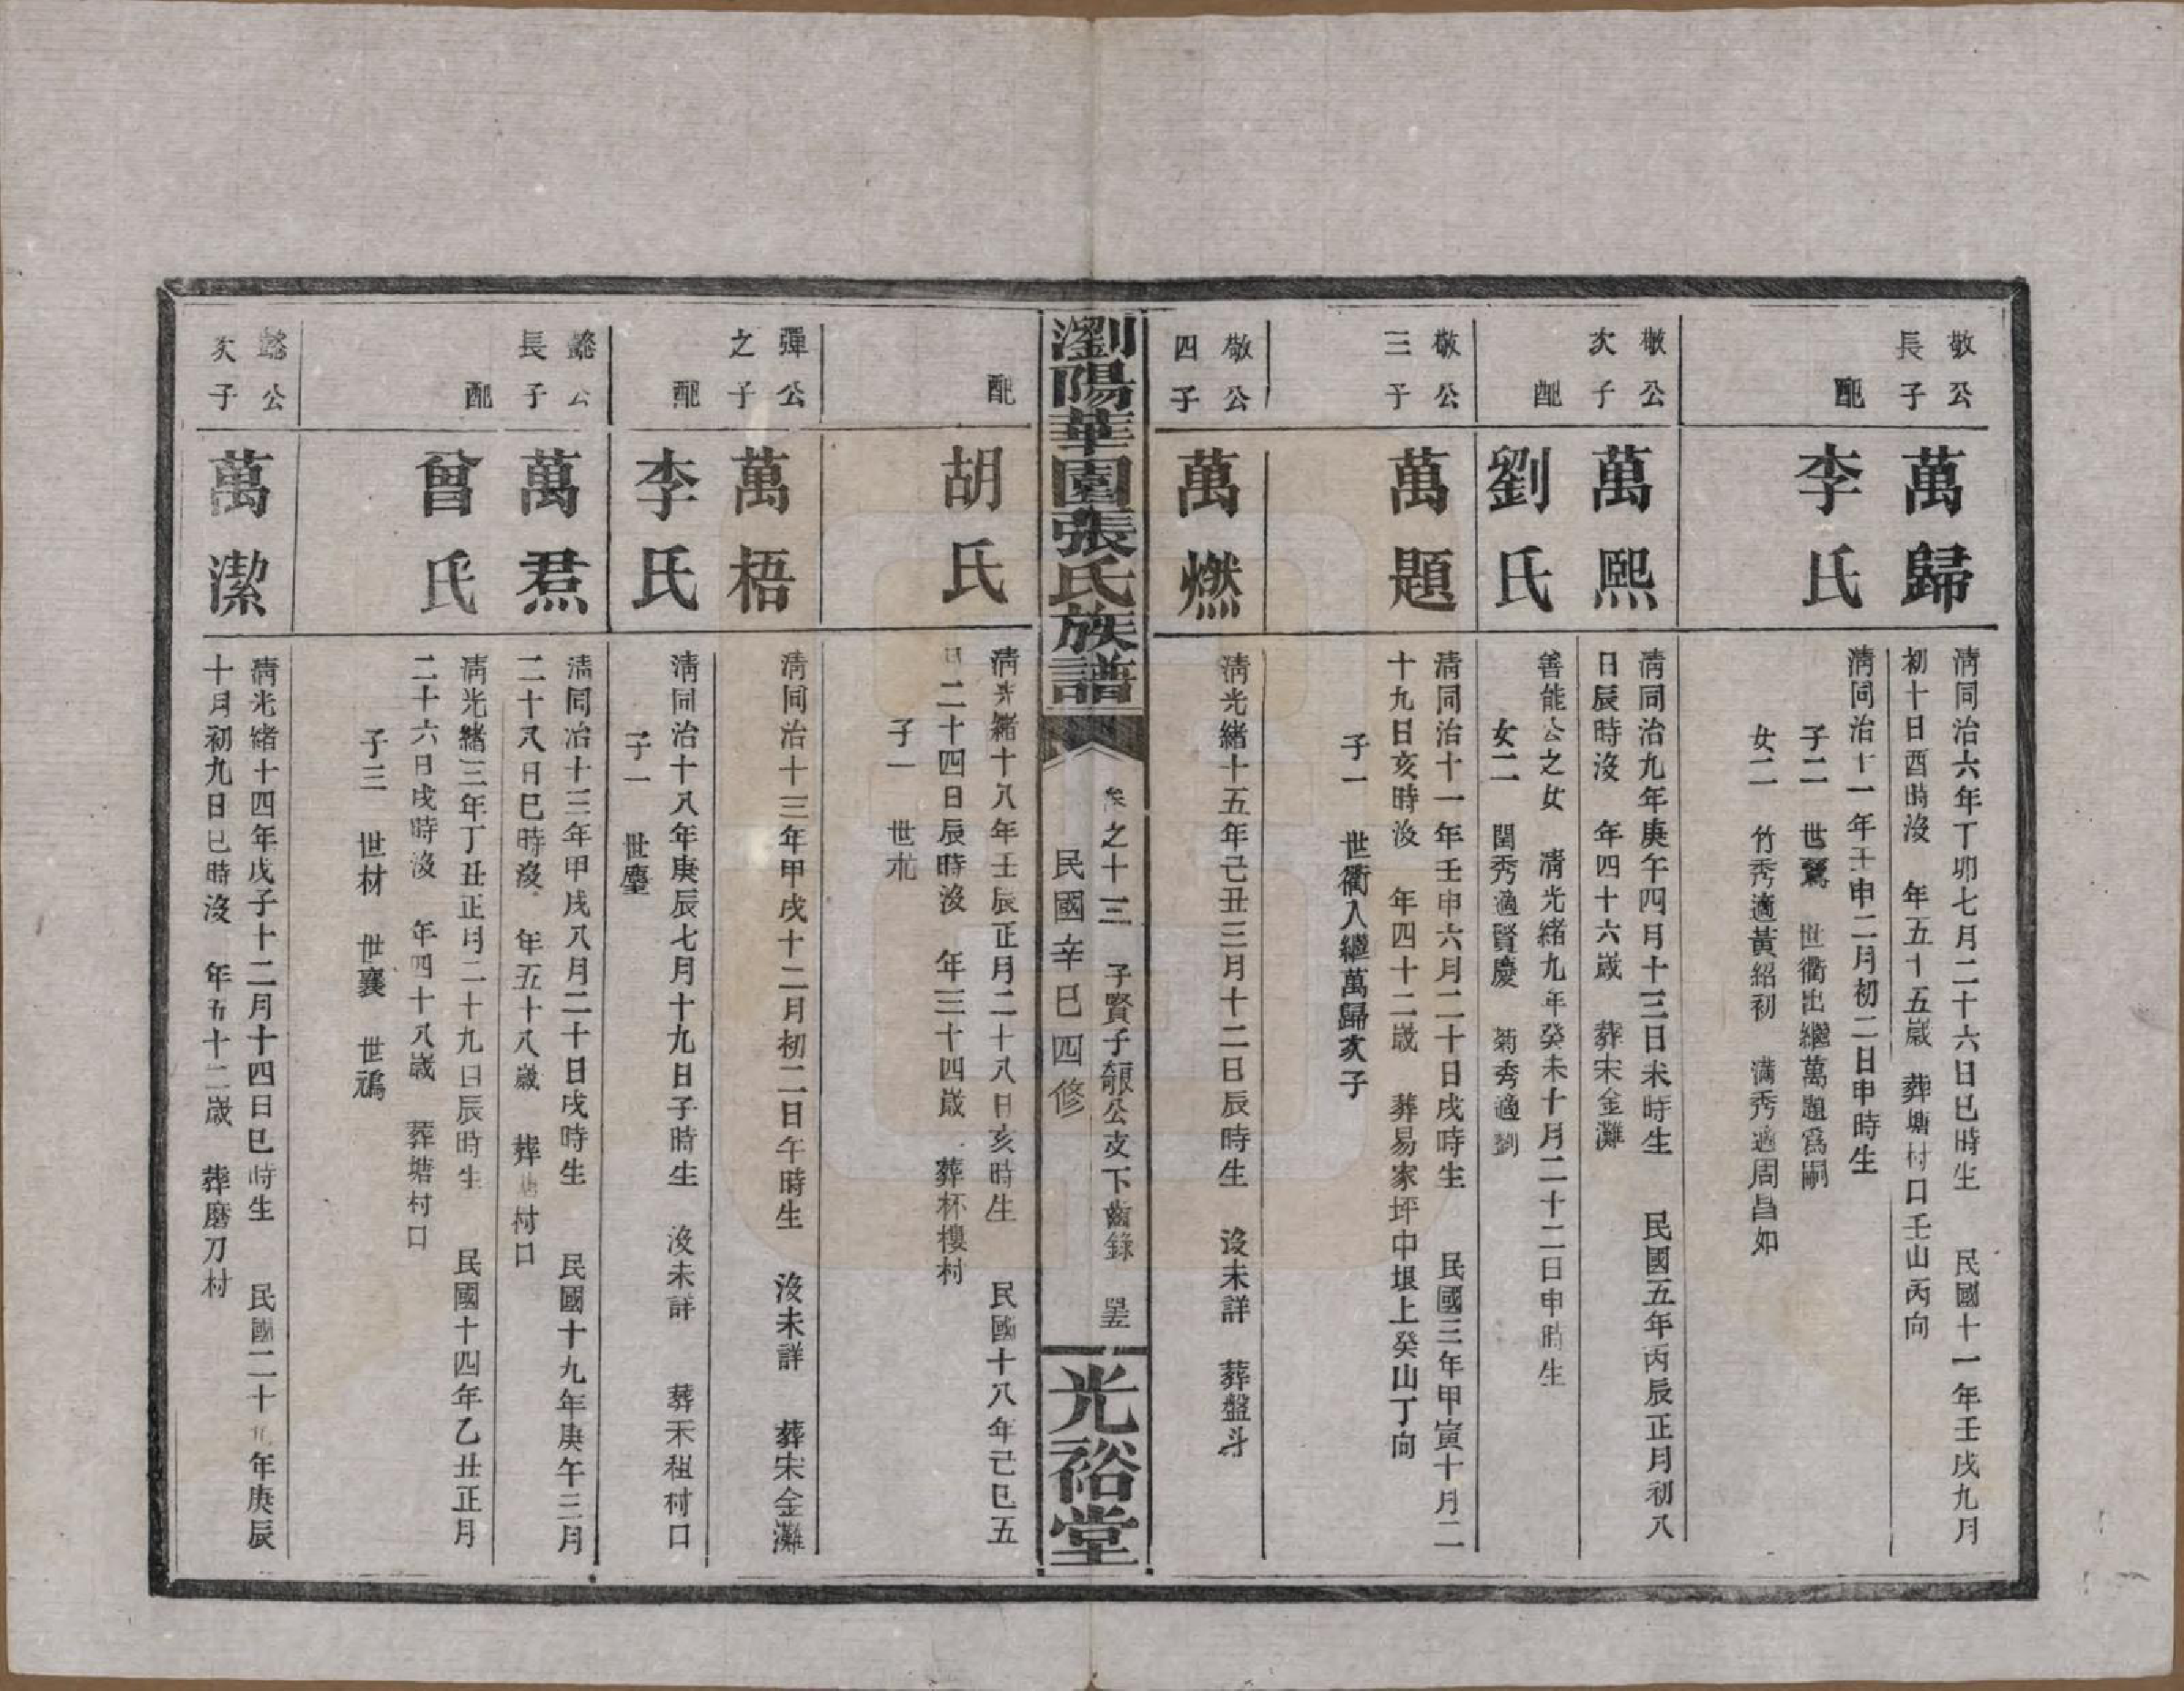 敬公
長子
萬歸
清同治六年丁卯七月二十六日巳時生 民國十一年壬戌九月
初十日酉時沒 年五十五歲 葬塘村口壬山丙向
配
李氏
清同治十一年壬申二月初二日申時生
子二 世鸞 世衢出繼萬題爲嗣
女二 竹秀適黃紹初 滿秀適周昌如
敬公
次子
萬熙
清同治九年庚午四月十三日未時生 民國五年丙辰正月初八
日辰時沒 年四十六歲 葬宋金灘
配
劉氏
善能公之女 清光緒九年癸未十月二十二日申時生
女二 閏秀適賢慶 菊秀適劉
敬公
三子
萬題
清同治十一年壬申六月二十日戌時生 民國三年甲寅十月二
十九日亥時沒 年四十二歲 葬易家坪中垠上癸山丁向
子一 世衢入繼萬歸次子
敬公
四子
萬燃
清光緒十五年己丑三月十二日辰時生 沒未詳 葬盤斗
瀏陽華園張氏族譜
卷之十三 子賢子報公支下齒錄
民國辛巳四修
光裕堂
配
胡氏
清光緒十八年壬辰正月二十八日亥時生 民國十八年己巳五
月二十四日辰時沒 年三十四歲 葬杯樓村
子一 世
彈公
之子
萬梧
清同治十三年甲戌十二月初二日午時生 沒未詳 葬宋金灘
配
李氏
清同治十八年庚辰七月十九日子時生 沒未詳 葬禾租村口
子一 世塵
公
長子
萬焄
清同治十三年甲戌八月二十日戌時生 民國十九年庚午三月
二十八日巳時沒 年五十八歲 葬塘村口
配
曾氏
清光緒三年丁丑正月二十九日辰時生 民國十四年乙丑正月
二十六日戌時沒 年四十八歲 葬塘村口
子三 世材 世襄 世
公
次子
萬潔
清光緒十四年戊子十二月十四日巳時生 民國二十九年庚辰
十月初九日巳時沒 年五十二歲 葬磨刀村